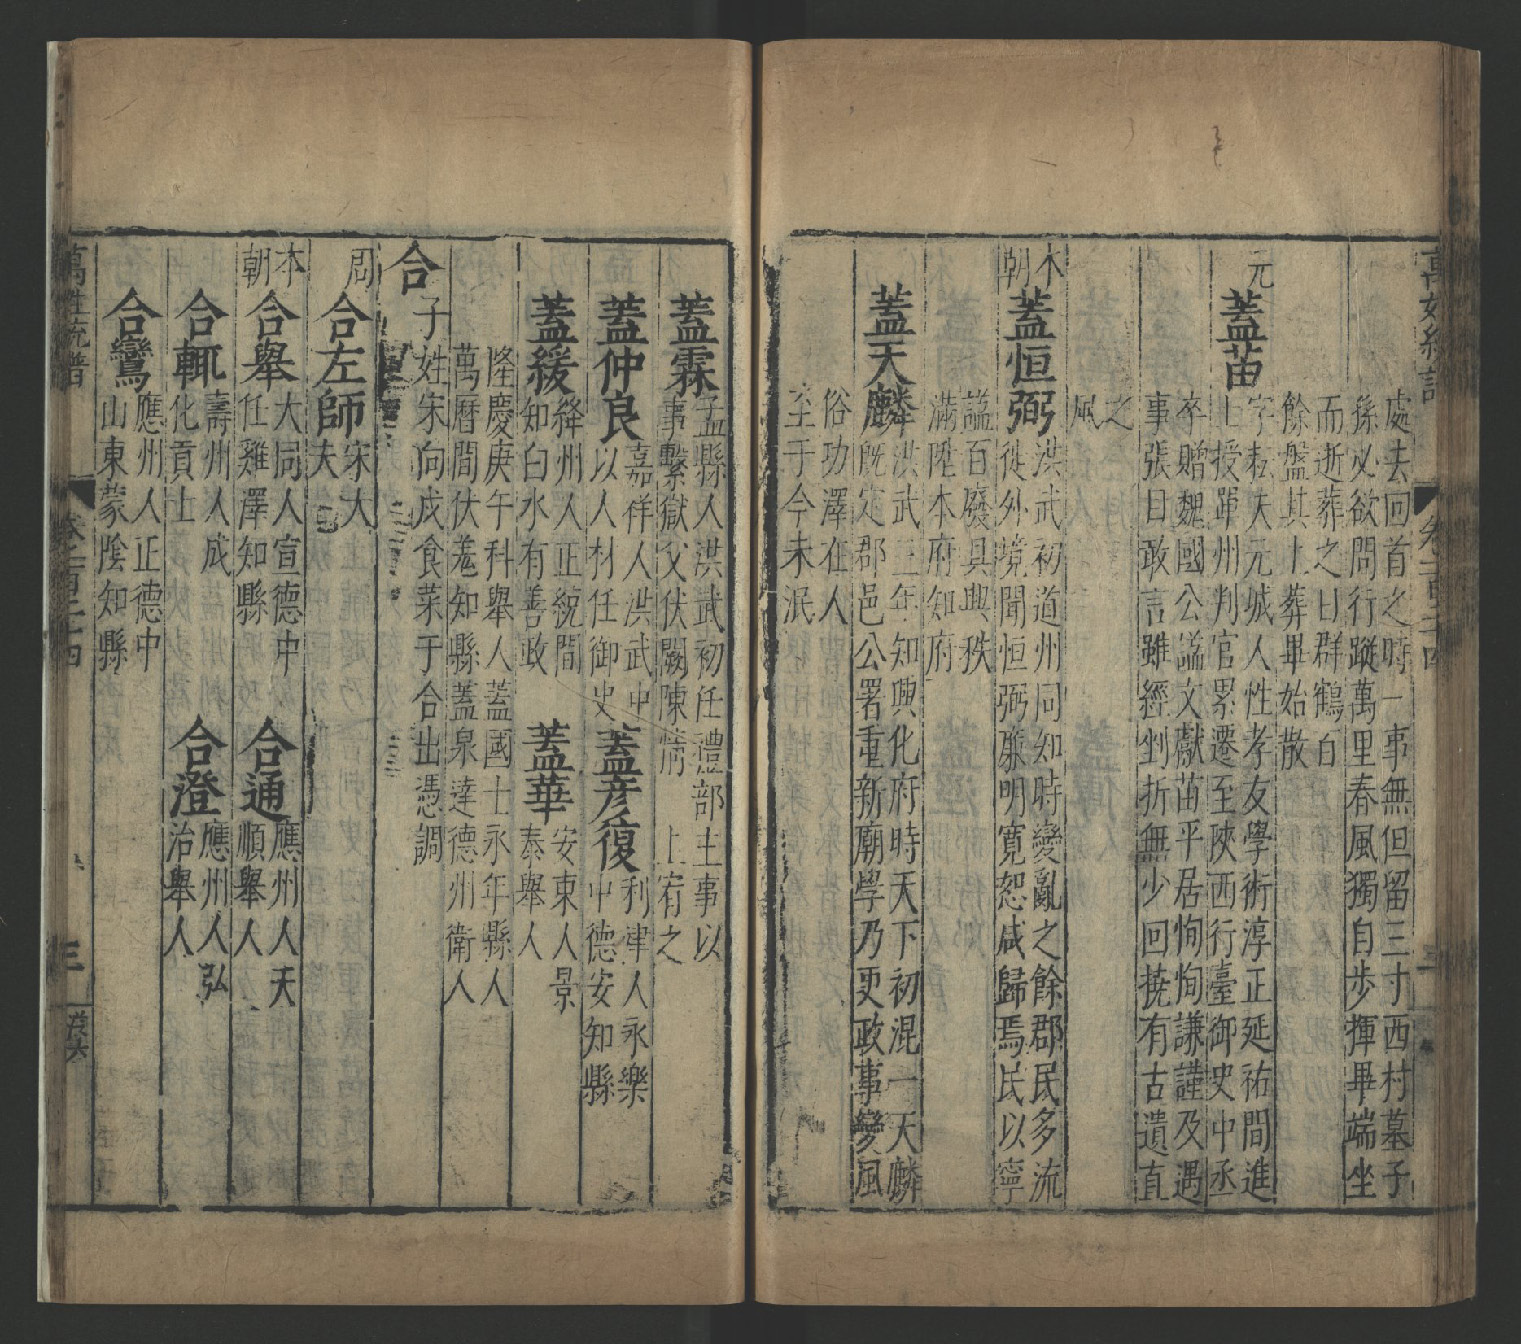 處去回首之時一事無但留三寸西村墓子
孫必欲問行蹤萬里春風獨自步揮畢端坐
而逝葬之日群鶴百
餘盤其上葬畢始散
元
蓋苗
字耘夫元城人性孝友學術淳正延祐間進
士授單州判官累遷至陝西行臺御史中丞
卒贈魏國公謚文獻苗平居恂恂謙謹及遇
事張目敢言雖經剉折無少回撓有古遺直
之
風
本朝
蓋恒弼
洪武初道州同知時變亂之餘郡民多流
徙外境聞恒弼廉明寬恕咸歸焉民以寧
謐百廢具興秩
滿陞本府知府
蓋天麟
洪武三年知興化府時天下初混一天麟
既定郡邑公署重新廟學乃更政事變風
俗功澤在人
至于今未泯
蓋霖
孟縣人洪武初任禮部主事以
事繫獄父伏闕陳情 上宥之
蓋仲良
嘉祥人洪武中
以人材任御史
蓋彦復
利津人永樂
中德安知縣
蓋緩
絳州人正統間
知白水有善政
蓋華
安東人景
泰舉人
隆慶庚午科舉人蓋國士永年縣人
萬曆間伏羌知縣蓋泉達德州衛人
合
子姓宋向戌食菜于合出憑調
周
合左師
宋大
夫
本朝
合舉
大同人宣德中
任雞澤知縣
合通
應州人天
順舉人
合輒
壽州人成
化貢士
合澄
應州人弘
治舉人
合鸞
應州人正德中
山東蒙陰知縣
萬姓統譜
三